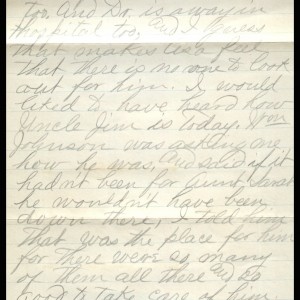 too. And Dr. is away in
Hospital too, and I guess
that makes us feel
that there is no one to look
out for him. I would
liked to have heard how
Uncle Jim is today. Won
Johnson was asking me
how he was, and said if it
hadn't been for Aunt Sarah
he wouldn't have been
down there, I told him
that was the place for him
for there were so many
of them all there and so
good to take care of him